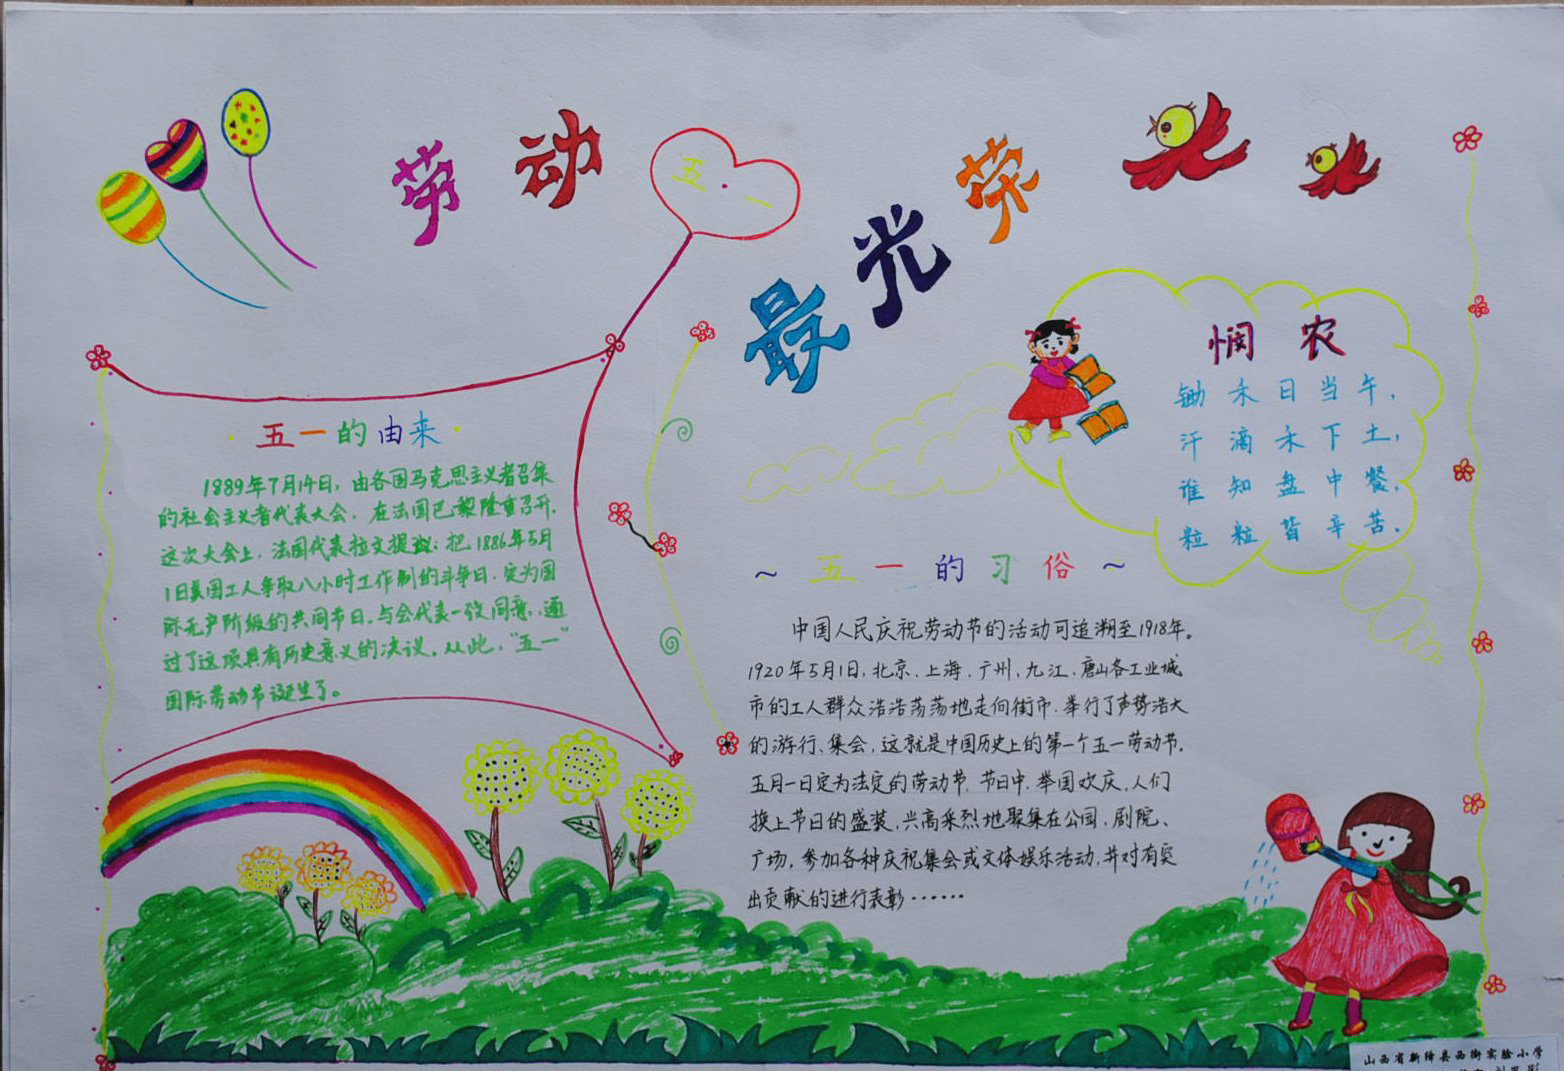 劳动
五·一
最光荣
五一的由来
1889年7月14日，由各国马克思主义者召集
的社会主义者代表大会，在法国巴黎隆重召开。
这次大会上，法国代表拉文提议：把1886年5月
1日美国工人争取八小时工作制的斗争日，定为国
际无产阶级的共同节日，与会代表一致同意，通
过了这项具有历史意义的决议。从此，“五一”
国际劳动节诞生了。
悯农
锄禾日当午，
汗滴禾下土，
谁知盘中餐，
粒粒皆辛苦。
～五一的习俗～
中国人民庆祝劳动节的活动可追溯至1918年。
1920年5月1日，北京、上海、广州、九江、唐山各工业城
市的工人群众浩浩荡荡地走向街市、举行了声势浩大
的游行、集会，这就是中国历史上的第一个五一劳动节。
五月一日定为法定的劳动节，节日中，举国欢庆，人们
换上节日的盛装，兴高采烈地聚集在公园、剧院、
广场，参加各种庆祝集会或文体娱乐活动，并对有突
出贡献的进行表彰……
山西省新绛县西街实验小学